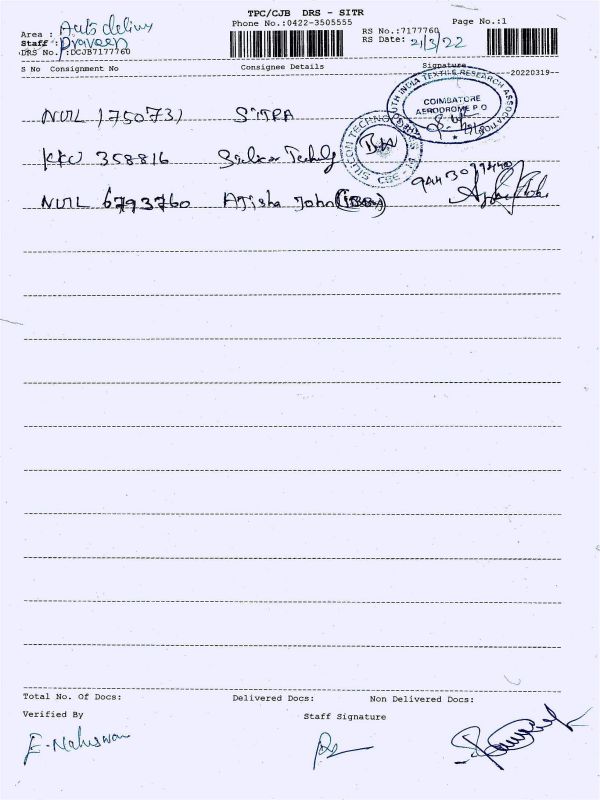 TPC/CJB DRS - SITR
Phone No.:0422-3505555
Page No.:1
Area : Auto delivery
Staff : Praveen
DRS No. :DCJB7177760
RS No.:7177760
RS Date: 21/3/22
S No Consignment No Consignee Details Signature
20220319--
NUL 1750731 SITRA
SOUTH INDIA TEXTILE RESEARCH ASSOCIATION
COIMBATORE
AERODROME P O
KKU 358816 Silicon
SILICON
NUL 6793760 Ajisha John
Total No. Of Docs: Delivered Docs: Non Delivered Docs:
Verified By Staff Signature